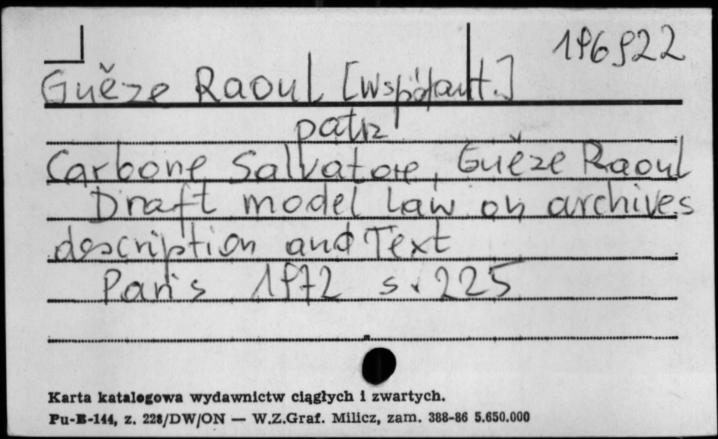 196922
Guěze Raoul [współaut.]
patrz
Carbone Salvatore, Guěze Raoul
Draft model law on archives
description and Text
Paris 1972 s. 225
Karta katalogowa wydawnictw ciągłych i zwartych.
Pu-B-144, z. 228/DW/ON — W.Z.Graf. Milicz, zam. 388-86 5.650.000